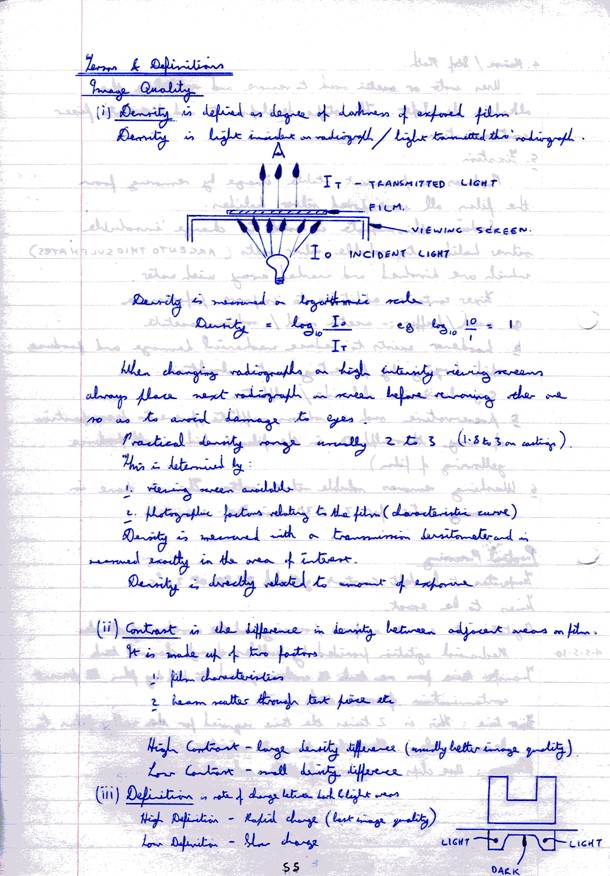 Terms & Definitions
Image Quality
(i) Density is defined as degree of darkness of exposed film
Density is light incident on radiograph / light transmitted thro' radiograph.
IT - TRANSMITTED LIGHT
FILM.
VIEWING SCREEN.
IO INCIDENT LIGHT
Density is measured on logarithmic scale
Density = log10 IO/IT eg log10 10/1 = 1
When changing radiographs on high intensity viewing screens
always place next radiograph in screen before removing other one
so as to avoid damage to eyes.
Practical density range usually 2 to 3 (1.8 to 3 on castings).
This is determined by:
1. viewing screen available
2. photographic factors relating to the film (characteristic curve)
Density is measured with a transmission densitometer and is
measured exactly in the area of interest.
Density is directly related to amount of exposure
(ii) Contrast is the difference in density between adjacent areas on film.
It is made up of two factors
1. film characteristics
2 beam scatter through test piece etc
High Contrast - large density difference (usually better image quality)
Low Contrast - small density difference
(iii) Definition is rate of change between dark & light areas
High Definition - Rapid change (best image quality)
Low Definition - Slow change
LIGHT
LIGHT
DARK
55